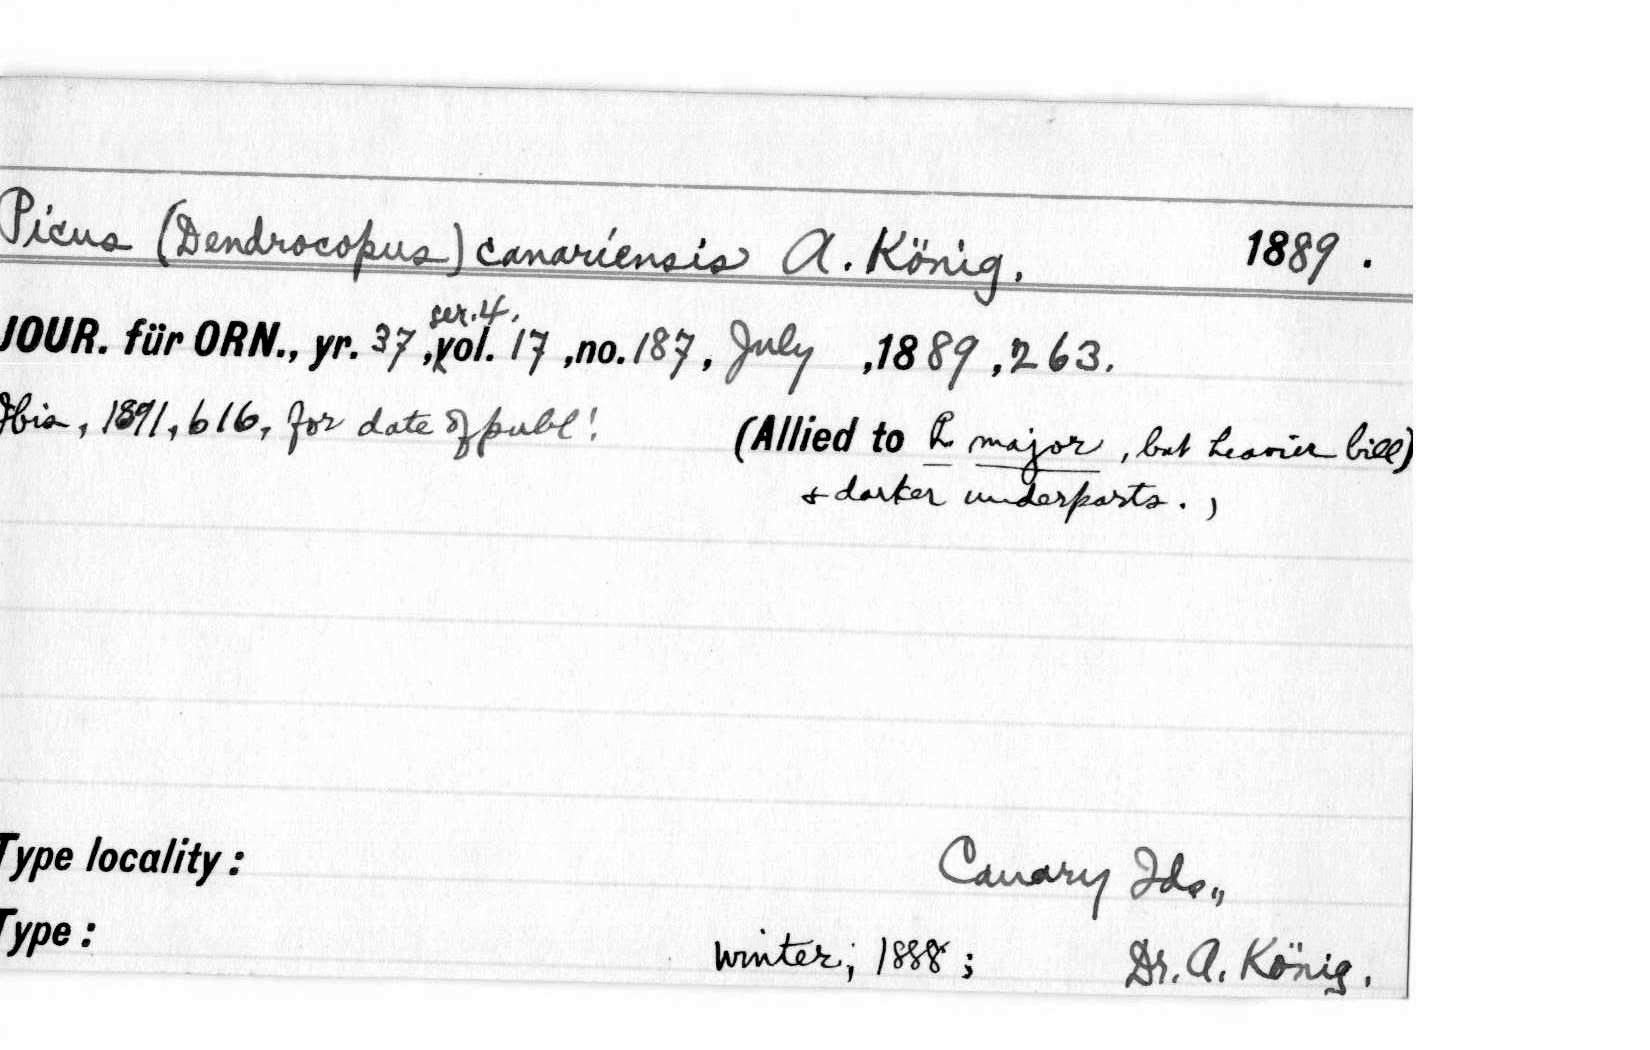 Picus (Dendrocopus) canariensis A. König. 1889.
ser. 4,
JOUR. für ORN., yr. 37, vol. 17, no. 187, July, 1889, 263.
Ibis, 1891, 616, for date of publ! (Allied to P. major, but heavier bill)
& darker underparts.)
Type locality: Canary Ids.,
Type: winter, 1888; Dr. A. König.